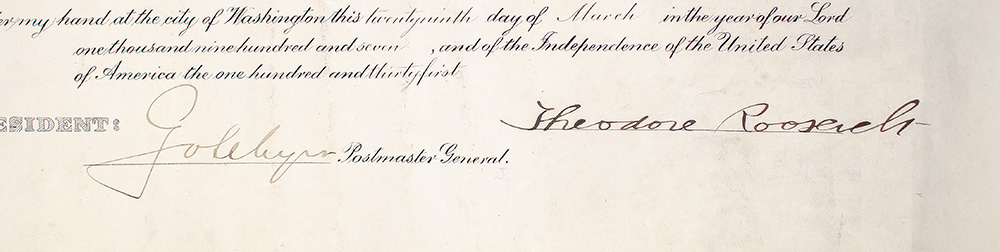 my hand at the city of Washington this twentyninth day of March in the year of our Lord
one thousand nine hundred and seven , and of the Independence of the United States
of America the one hundred and thirty first
ESIDENT:
Theodore Roosevelt
Postmaster General.